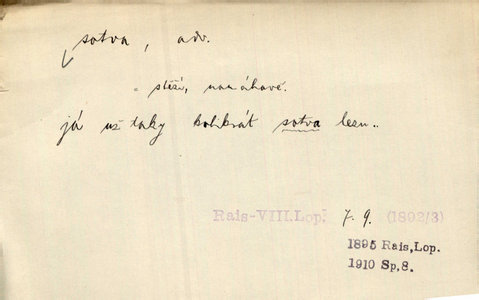 sotva, adv.
= stěží, namáhavě.
já už taky kolikrát sotva lezu..
Rais-VIII.Lop. 7. 9. (1892/3)
1895 Rais,Lop.
1910 Sp,8.